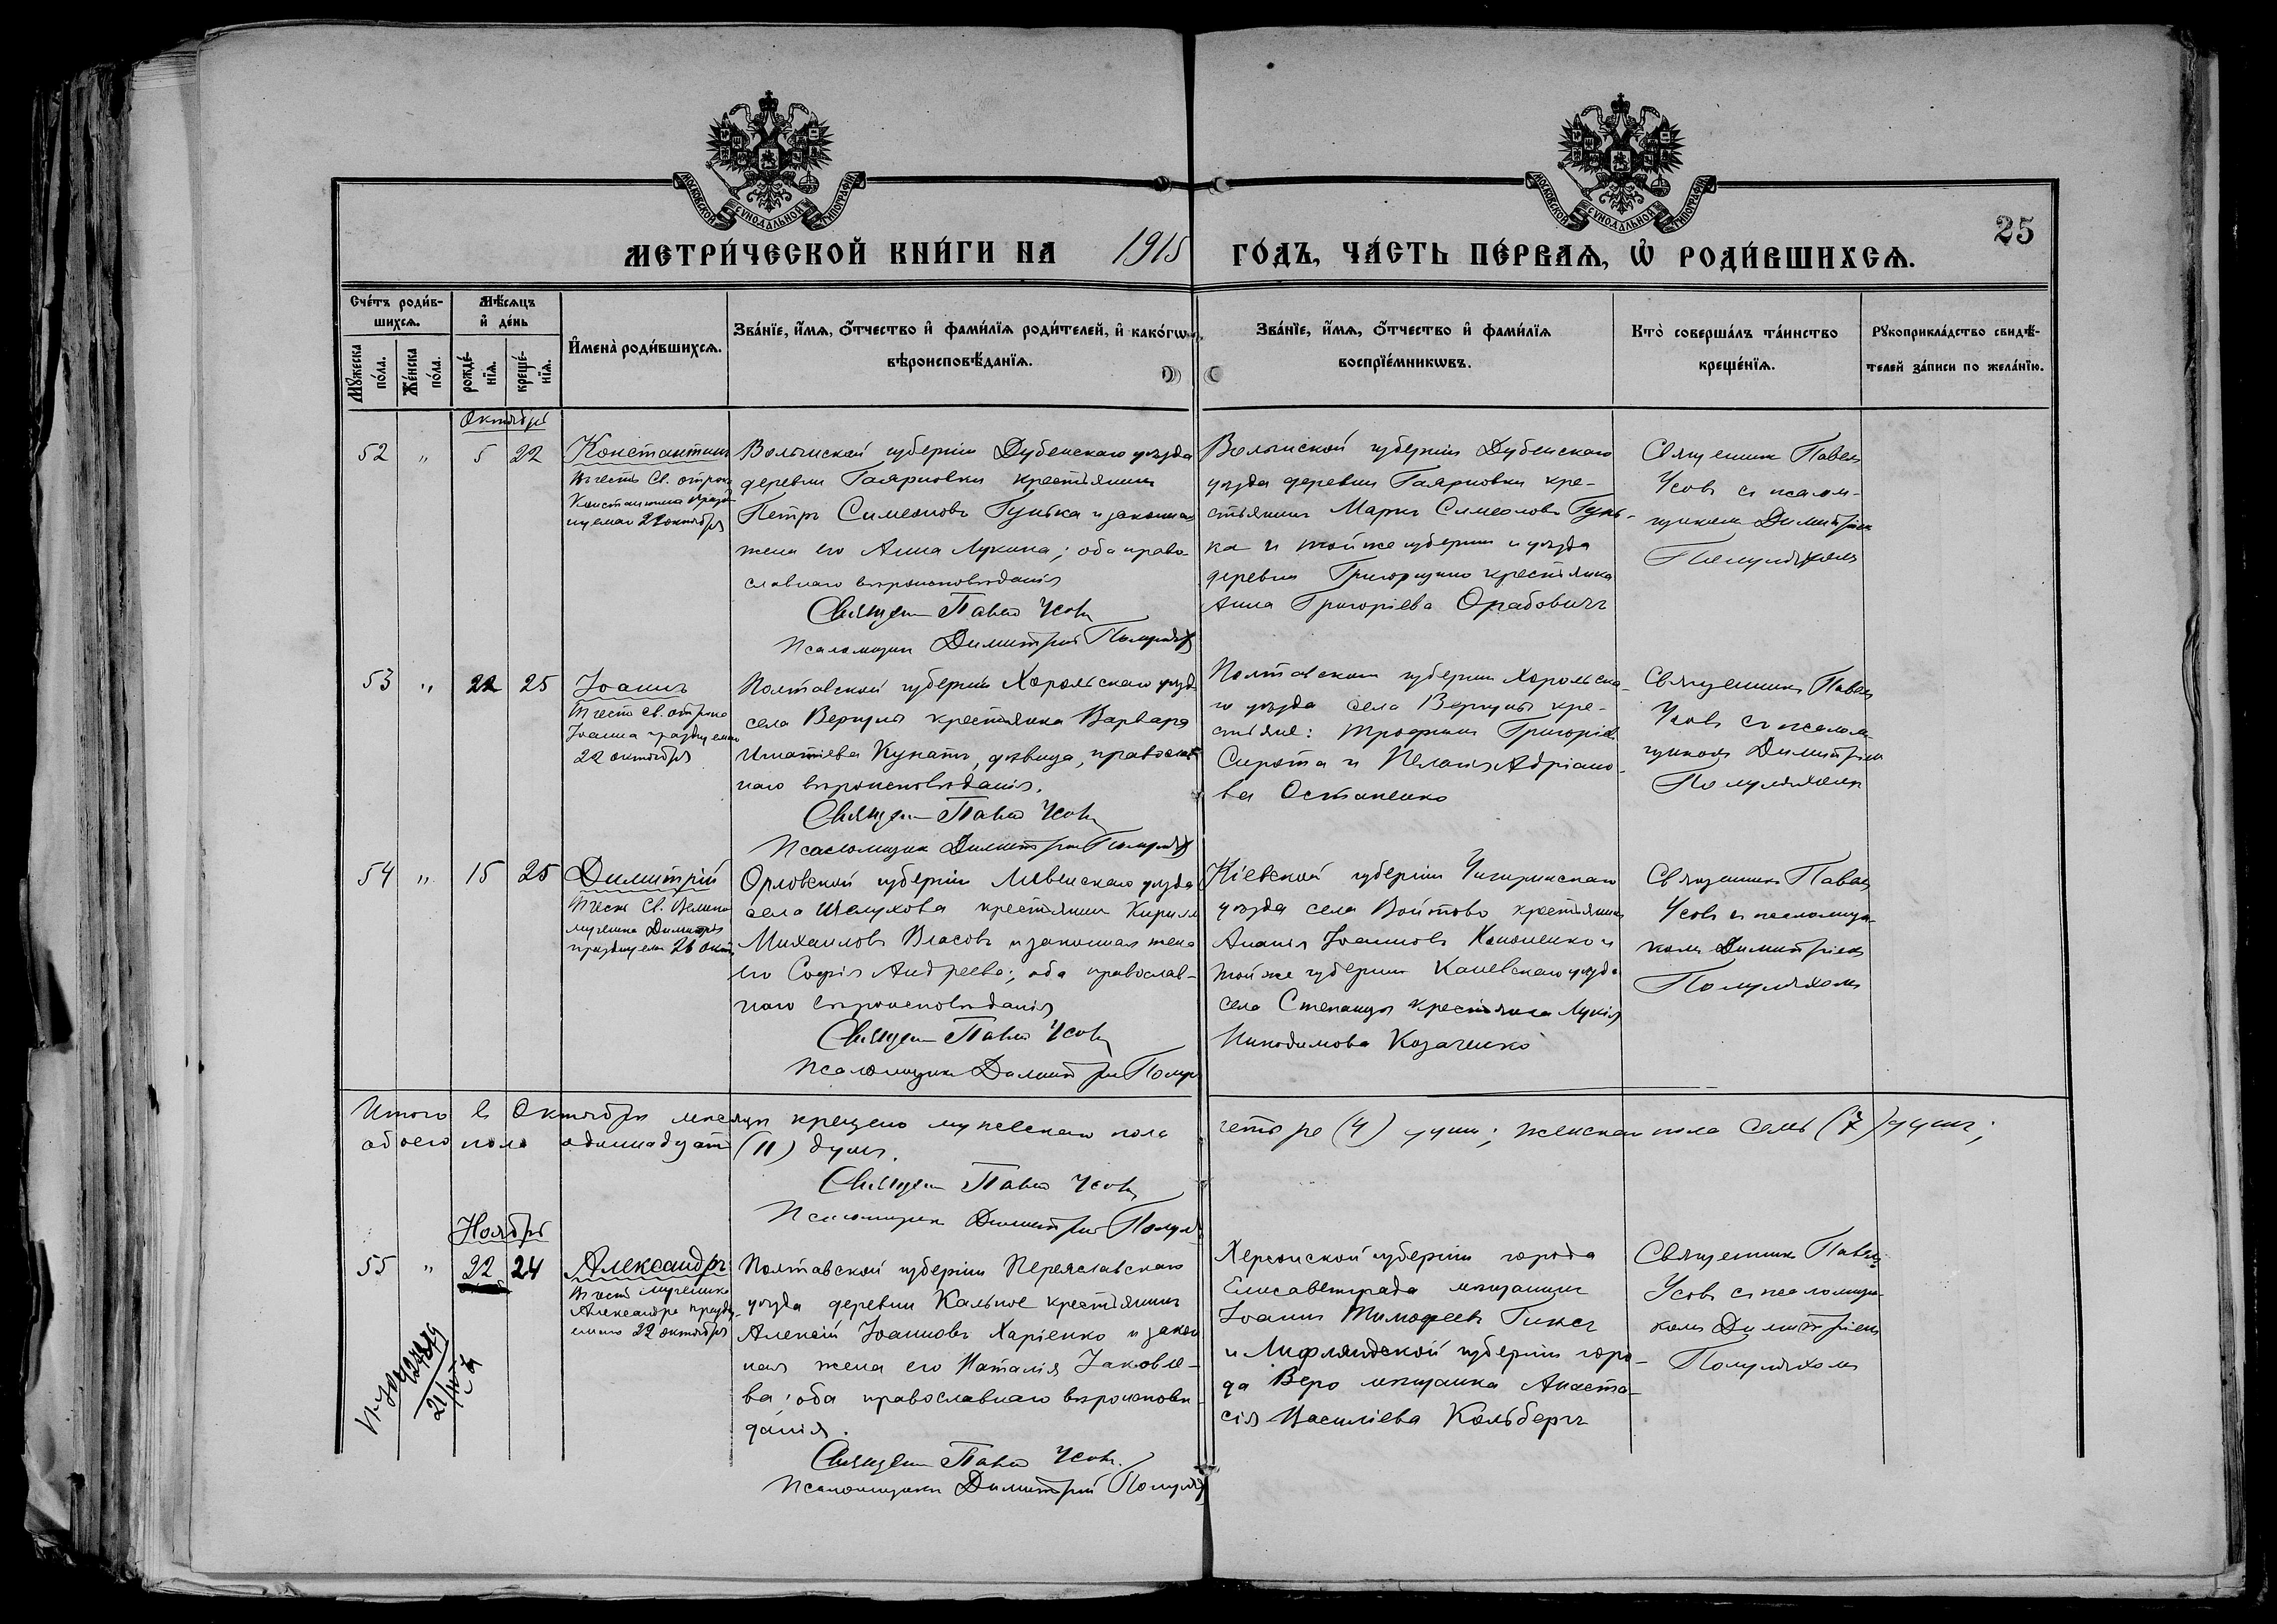 МОСКОВСКОЙ СѴНОДАЛЬНОЙ ТИПОГРАФІИ
МОСКОВСКОЙ СѴНОДАЛЬНОЙ ТИПОГРАФІИ
25
МЕТРИ́ЧЕСКОЙ КНИ́ГИ НА 1915 ГО́ДЪ, ЧА́СТЬ ПЕ́РВАѦ, Ѡ҆ РОДИ́ВШИХСѦ.
Сче́тъ роди́в-
шихсѧ.
Мѣ́сѧцъ
и҆ де́нь
Мꙋ́жеска
по́ла.
Же́нска
по́ла.
рожде́-
нїѧ.
креще́-
нїѧ.
И҆мена̀ роди́вшихсѧ.
Зва́нїе, и҆́мѧ, ѻ҆́тчество и҆ фами́лїѧ роди́телей, и҆ како́гѡ
вѣроисповѣ́данїѧ.
Зва́нїе, и҆́мѧ, ѻ҆́тчество и҆ фами́лїѧ
воспрїе́мникѡвъ.
Кто̀ соверша́лъ та́инство
креще́нїѧ.
Рꙋкоприкла́дство свидѣ́-
телей за́писи по жела́нїю.
Октябрь
52 " 5 22
Константинъ
въ честь Св. отрока
Константина праздн
уемаго 22 октября
Волынской губерніи Дубенскаго уѣзда
деревни крестьянинъ
Петръ Симеоновъ Гунька и законная
жена его Анна Лукина; оба право-
славнаго вѣроисповѣданія
Священ Павел Усовъ
Псаломщик Димитрій
Волынской губерніи Дубенскаго
уѣзда деревни кре-
стьянинъ Маркъ Симеоновъ Гунь-
ка и той же губерніи и уѣзда
деревни крестьянка
Анна Григоріева
Священник Павел
Усовъ съ псалом-
щиком Димитріем
Полуляхом
53 " 22 25
Іоаннъ
въ честь св. отрока
Іоанна празднуемаго
22 октября
Полтавской губерніи Хорольскаго уѣзда
села Вергуны крестьянка Варвара
Игнатіева дѣвица, православ
наго вѣроисповѣданія.
Священ Павел Усовъ
Псаломщик Димитрій
Полтавской губерніи Хорольска-
го уѣзда села Вергуны кре-
стьяне: Трофимъ Григоріев
Сирота и Пелагія Адріано-
ва Остапенко
Священник Павел
Усовъ съ псалом-
щиком Димитріем
Полуляхом
54 " 15 25
Димитрій
въ честь Св. Велико
мученика Димитрія
празднуем 26 окт
Орловской губерніи Ливенскаго уѣзда
села Шелухова крестьянин Кирилл
Михаиловъ Власовъ и законная жена
его Софія Андреева; оба православ-
наго вѣроисповѣданія
Священ Павел Усовъ
Псаломщик Димитрій
Кіевской губерніи Чигиринскаго
уѣзда села Войтово крестьянин
Ананія Іоанновъ Кононенко и
той же губерніи Каневскаго уѣзда
села Степанцы крестьянка Лукія
Никодимова Козаченко
Священник Павел
Усовъ съ псаломщи-
ком Димитріем
Полуляхом
Итого въ Октябрѣ месяцѣ крещено мужескаго пола четыре (4) души; женскаго пола семь (7) душъ;
обоего пола одиннадцать (11) душъ.
Священ Павел Усовъ
Псаломщик Димитрій
Ноябрь
55 " 22 24
Александръ
въ честь мученика
Александра праздну
емаго 22 октября
Полтавской губерніи Переяславскаго
уѣзда деревни Кальное крестьянинъ
Алексій Іоанновъ Харіенко и закон
ная жена его Наталія Іаковле-
ва; оба православнаго вѣроисповѣ-
данія.
Священ Павел Усовъ.
Псаломщик Димитрій
Херсонской губерніи города
Елисаветграда мѣщанинъ
Іоанн Тимофеевъ
и Лифляндской губерніи горо-
да Веро мѣщанка Анаста-
сія Василіева Кольбергъ
Священник Павел
Усовъ съ псаломщи-
ком Димитріем
Полуляхом